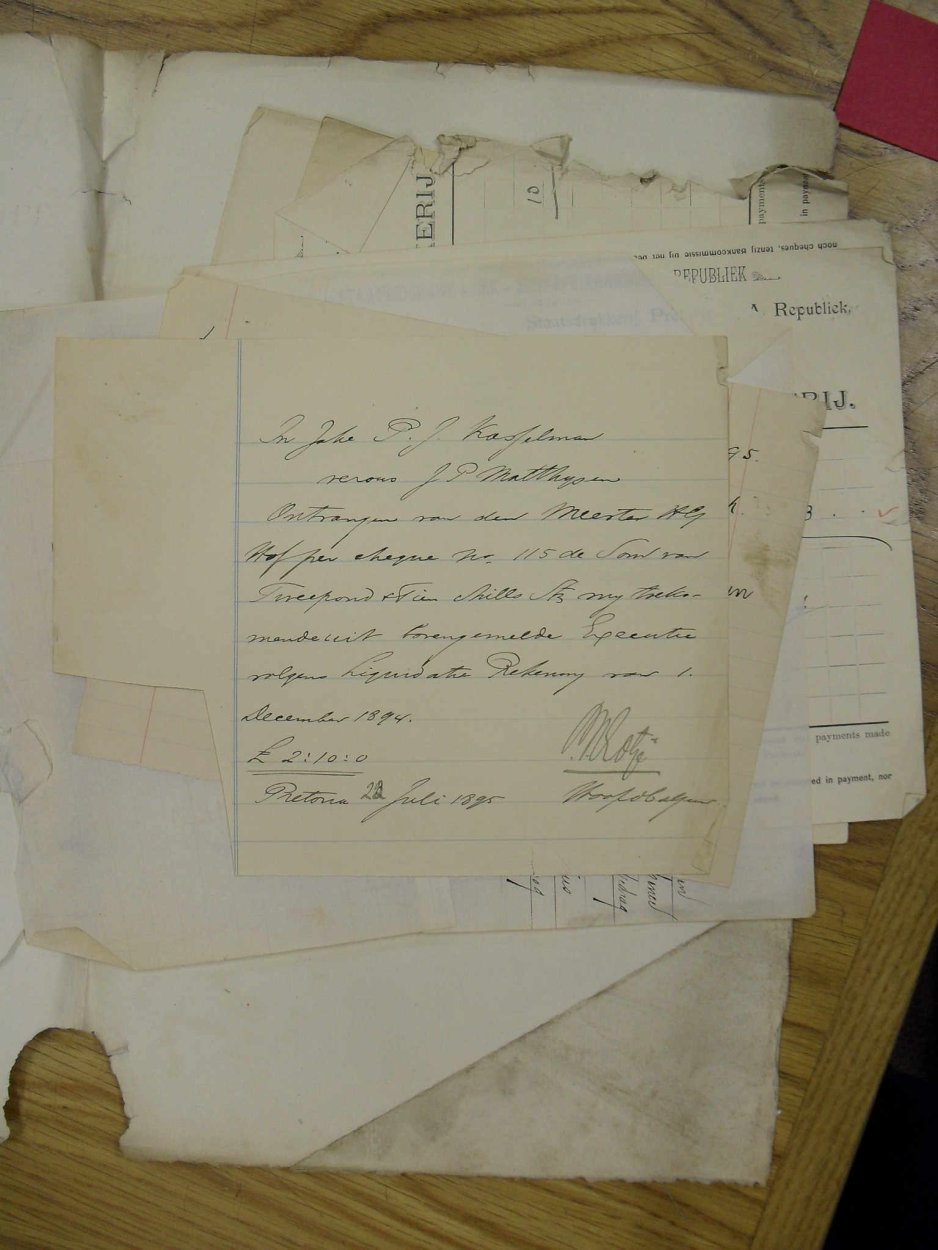 ERIJ.
10
payments
in payment
noch cheques, tenzij Bankcommissie bij het
REPUBLIEK
Staatsdrukkerij Pre
A Republiek,
RIJ.
95.
In Zake P. J. Kasselman
versus J P Matthysen
Ontvangen van den Meester HG
Hof per cheque No. 115 de Som van
Tweepond & Tien Shills Stg my toeko-
mende uit bovengemelde Executie
volgens Liquidatie Rekening van 1.
December 1894.
£ 2:10:0
Pretoria 22 Juli 1895
Hoofdbaljuw
payments made
ed in payment, nor